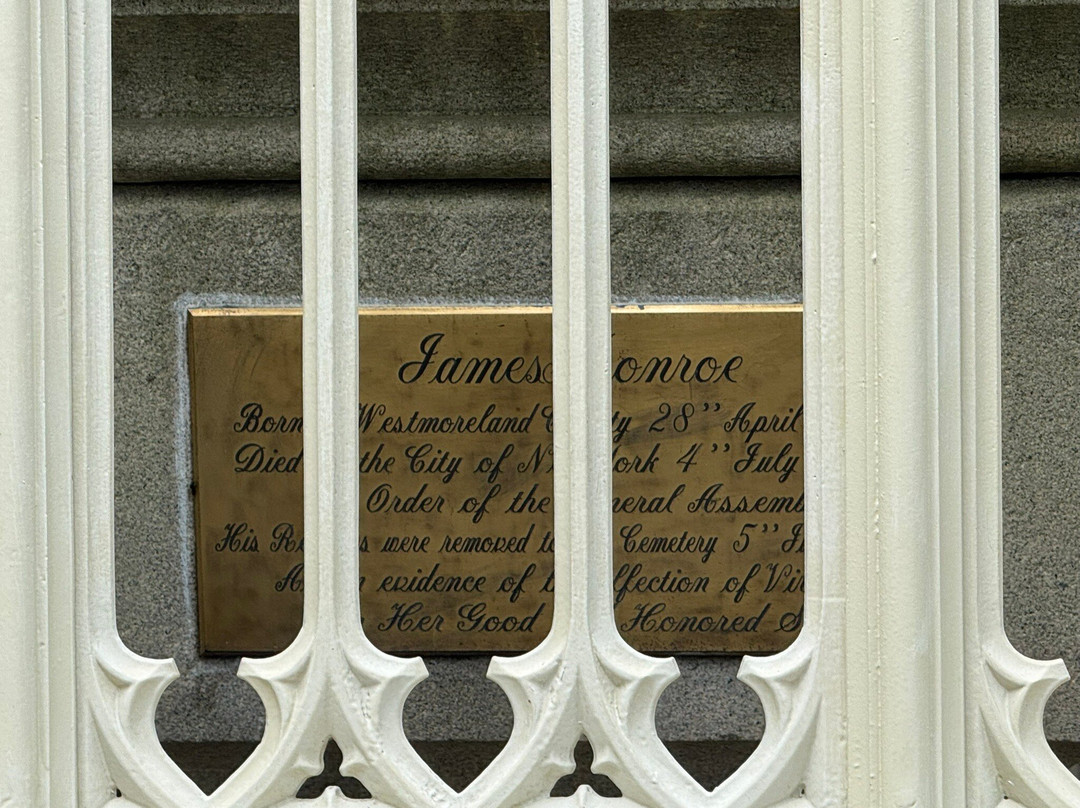 James onroe
Born Westmoreland ty 28" April
Died the City of N ork 4" July
Order of the neral Assemb
His R s were removed to Cemetery 5" J
A evidence of ffection of Vir
Her Good Honored S